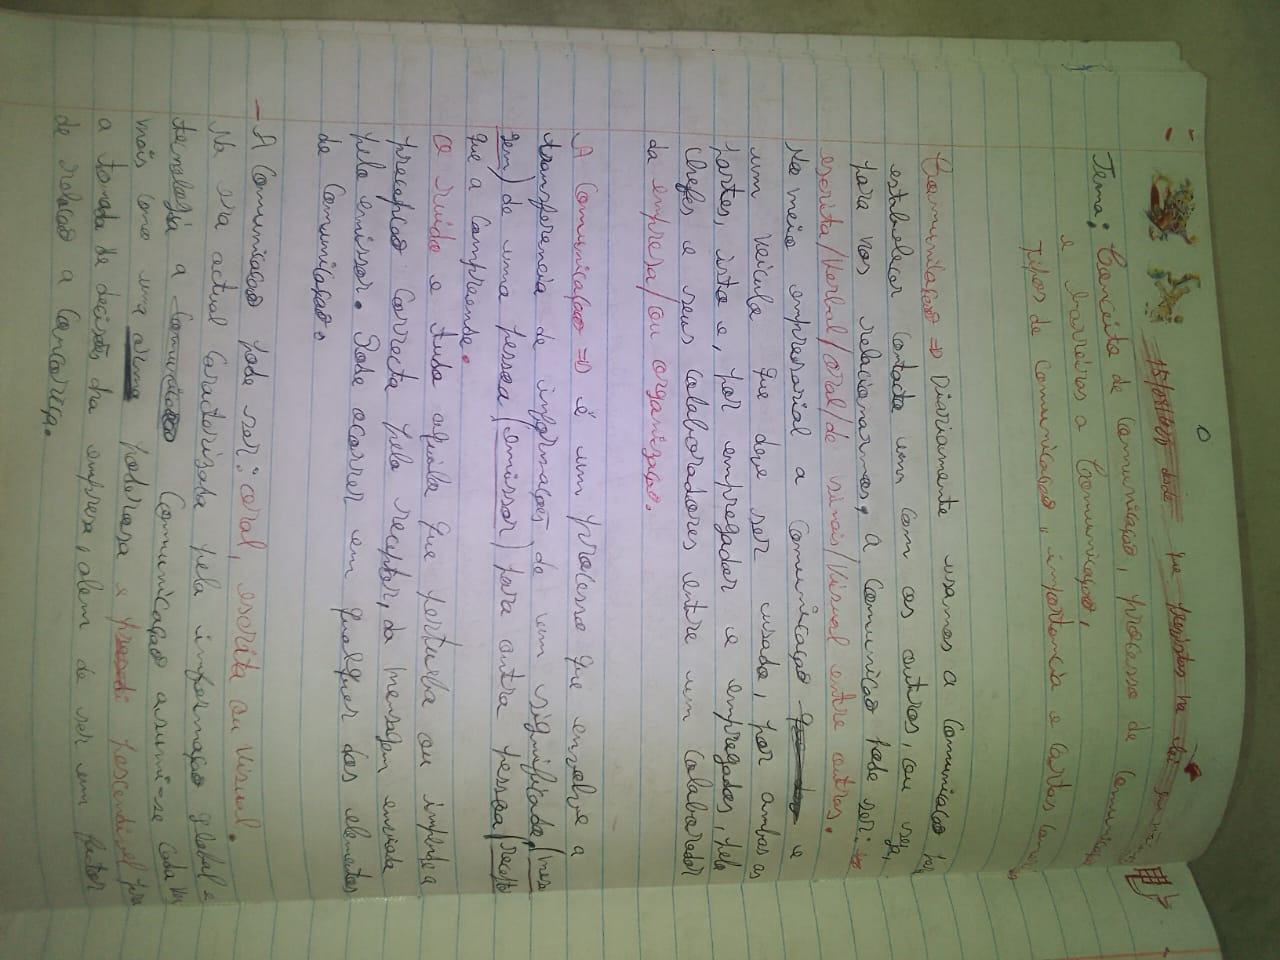 Tema: Conceito de Comunicação, processo de Comunicação
e barreiras a Comunicação,
Tipos de Comunicação, importância e Cartas
Comunicação => Diariamente usamos a Comunicação
estabelecer contacto uns com os outros, ou seja,
para nos relacionarmos, a Comunicação pode ser:
escrita/Verbal/oral/de sinais/Visual entre outros.
No meio empresarial a Comunicação e
um veículo que deve ser usado, por ambas as
partes, isto e, por empregador e empregados, pelo
Chefes e seus Colaboradores entre um Colaborador
da empresa/ou organização.
A Comunicação => é um processo que envolve a
transferencia de informações, de um significado, (mensa
gem) de uma pessoa (emissor) para outra pessoa (recepto
que a Compreende.
O ruído e tudo aquilo que perturba ou impede a
precepção Correcta pelo receptor, da mensagem enviada
pelo emissor. Pode ocorrer em qualquer dos elementos
de Comunicação.
- A Comunicação pode ser: oral, escrita ou visual.
Na era actual Caracterizada pela informação global e
tecnologia a Comunicação assumi-se cada vez
mais como uma arma poderosa e pescendivel para
a tomada de decisão da empresa, alem de ser um factor
de relação a